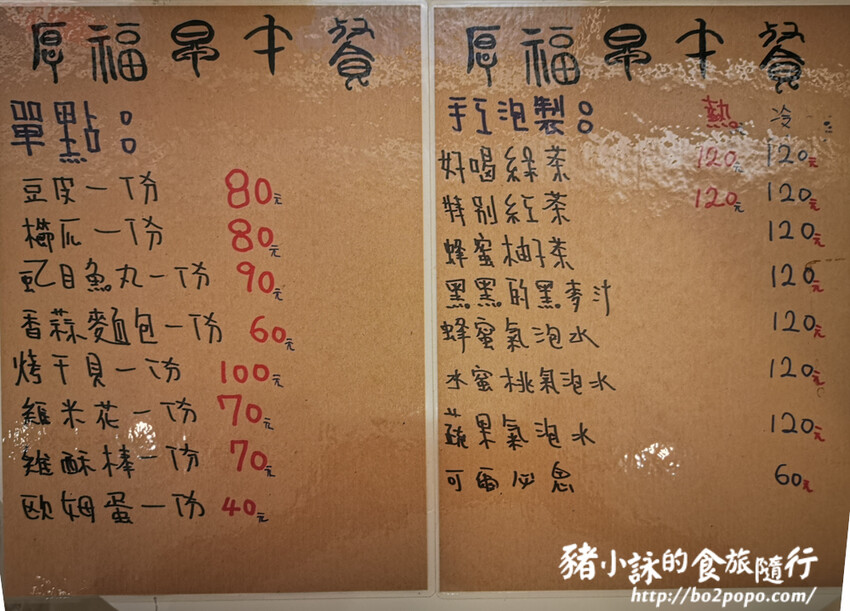 厚福早午餐
單點:
豆皮一份 80元
櫛瓜一份 80元
虱目魚丸一份 90元
香蒜麵包一份 60元
烤干貝一份 100元
雞米花一份 70元
雞酥棒一份 70元
歐姆蛋一份 40元
厚福早午餐
手工泡製: 熱 冷
好喝綠茶 120元 120元
特别紅茶 120元 120元
蜂蜜柚子茶 120元
黑黑的黑麥汁 120元
蜂蜜氣泡水 120元
水蜜桃氣泡水 120元
蔬果氣泡水 120元
可爾必思 60元
豬小詠的食旅隨行
http://bo2popo.com/